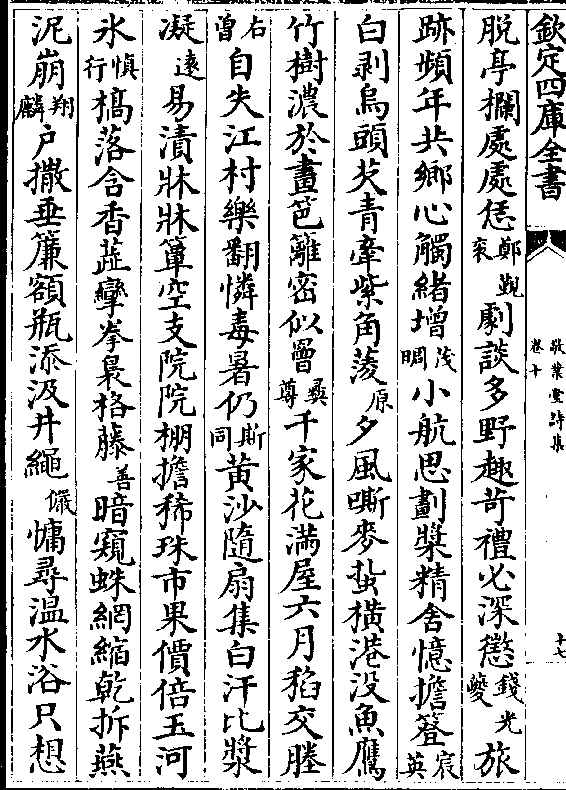 欽定四庫全書
敬業堂詩集
卷十
十七
脱亭欄處處恁鄭覲衮劇談多野趣苛禮必深懲錢光夔旅
跡頻年共鄉心觸緒增茂𥅆小航思劃槳精舍憶擔簦宸英
白剥烏頭芡青牽紫角菱原夕風嘶麥蚻横港没魚鷹
竹樹濃於畫笆籬密似罾彝尊千家花滿屋六月稻交塍
右曾自失江村樂翻憐毒暑仍斯同黄沙隨扇集白汗比漿
凝遠易漬牀牀簟空支院院棚擔稀珠市果價倍玉河
氷慎行槁落含香蕋孿拳裊格藤善暗窺蛛網縮乾拆燕
泥崩翔麟户撒垂簾額瓶添汲井繩儼慵尋温水浴只想